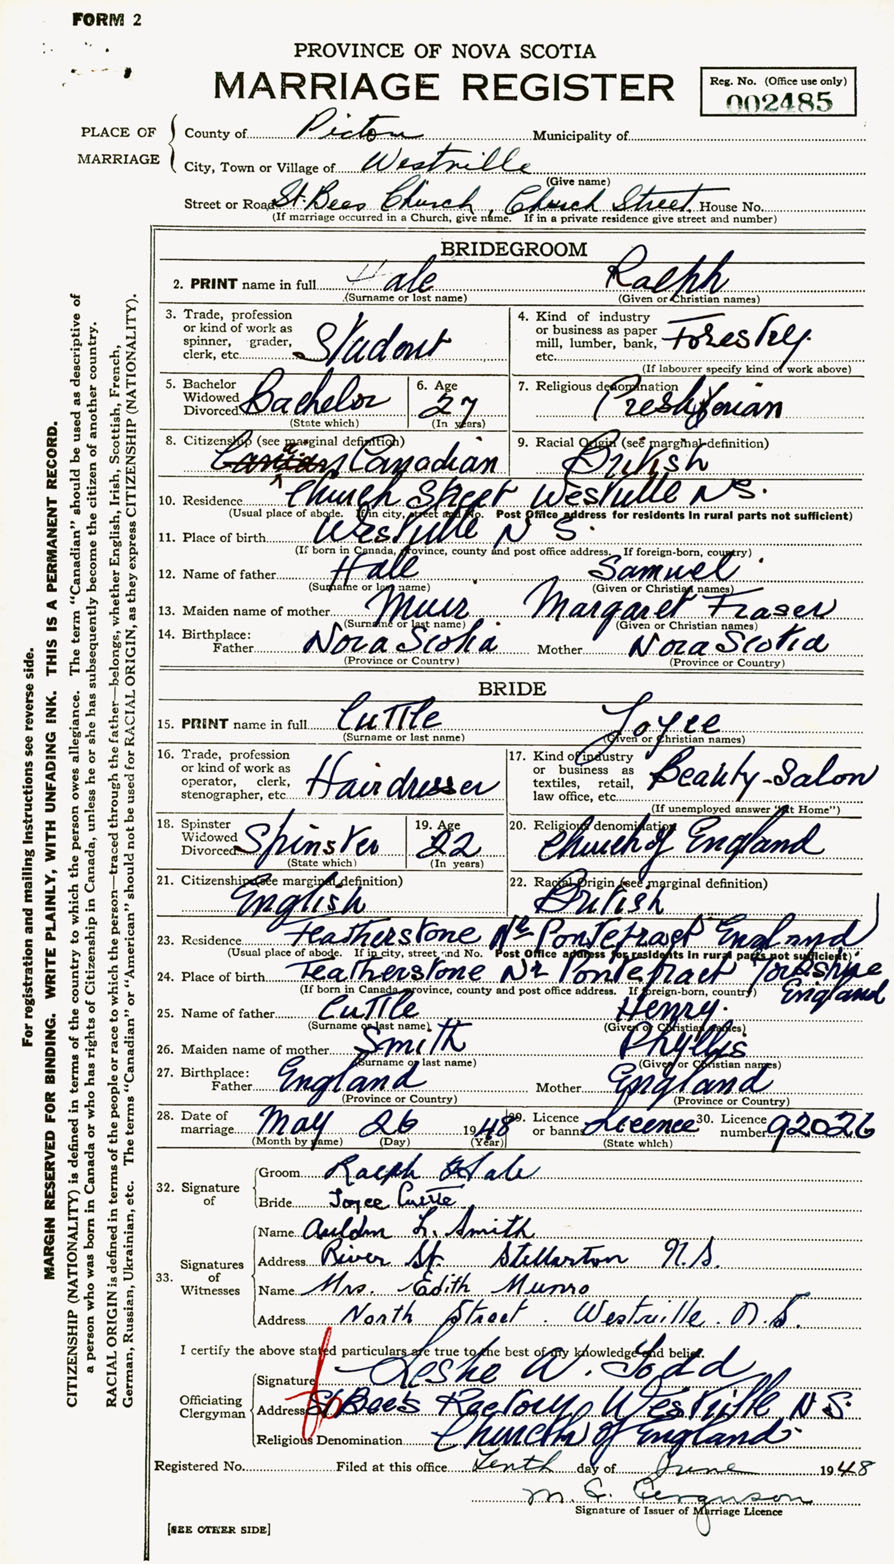 FORM 2
PROVINCE OF NOVA SCOTIA
MARRIAGE REGISTER
Reg. No. (Office use only)
002485
PLACE OF MARRIAGE
County of Pictou Municipality of
City, Town or Village of Westville
(Give name)
Street or Road St. Bees Church, Church Street. House No.
(If marriage occurred in a Church, give name. If in a private residence give street and number)
BRIDEGROOM
2. PRINT name in full Hale Ralph
(Surname or last name) (Given or Christian names)
3. Trade, profession or kind of work as spinner, grader, clerk, etc. Student
4. Kind of industry or business as paper mill, lumber, bank, etc. Forestry
(If labourer specify kind of work above)
5. Bachelor Widowed Divorced Bachelor
(State which)
6. Age 27
(In years)
7. Religious denomination Presbyterian
8. Citizenship (see marginal definition)
Canadian
9. Racial Origin (see marginal definition)
British
10. Residence Church Street Westville N S.
(Usual place of abode. If in city, street and No. Post Office address for residents in rural parts not sufficient)
11. Place of birth Westville N S.
(If born in Canada, province, county and post office address. If foreign-born, country)
12. Name of father Hale Samuel
(Surname or last name) (Given or Christian names)
13. Maiden name of mother Muir Margaret Fraser
(Surname or last name) (Given or Christian names)
14. Birthplace:
Father Nova Scotia Mother Nova Scotia
(Province or Country) (Province or Country)
BRIDE
15. PRINT name in full Cuttle Joyce
(Surname or last name) (Given or Christian names)
16. Trade, profession or kind of work as operator, clerk, stenographer, etc. Hairdresser
17. Kind of industry or business as textiles, retail, law office, etc. Beauty-Salon
(If unemployed answer "At Home")
18. Spinster Widowed Divorced Spinster
(State which)
19. Age 22
(In years)
20. Religious denomination
Church of England
21. Citizenship (see marginal definition)
English
22. Racial Origin (see marginal definition)
British
23. Residence Featherstone Nr Pontefract England
(Usual place of abode. If in city, street and No. Post Office address for residents in rural parts not sufficient)
24. Place of birth Featherstone Nr Pontefract Yorkshire England
(If born in Canada, province, county and post office address. If foreign-born, country)
25. Name of father Cuttle Henry.
(Surname or last name) (Given or Christian names)
26. Maiden name of mother Smith Phyllis
(Surname or last name) (Given or Christian names)
27. Birthplace:
Father England Mother England
(Province or Country) (Province or Country)
28. Date of marriage May 26 1948
(Month by name) (Day) (Year)
29. Licence or banns Licence
(State which)
30. Licence number 92026
32. Signature of
Groom Ralph Hale
Bride Joyce Cuttle
33. Signatures of Witnesses
Name L. Smith
Address River St. Stellarton N.S.
Name Mrs. Edith Munro
Address North Street. Westville. N.S.
I certify the above stated particulars are true to the best of my knowledge and belief.
Officiating Clergyman
Signature Leslie W. Todd
Address St Bees Rectory Westville N S.
Religious Denomination Church of England.
Registered No. Filed at this office Tenth day of June 1948
M. C. Ferguson
Signature of Issuer of Marriage Licence
[SEE OTHER SIDE]
For registration and mailing instructions see reverse side.
MARGIN RESERVED FOR BINDING. WRITE PLAINLY, WITH UNFADING INK. THIS IS A PERMANENT RECORD.
CITIZENSHIP (NATIONALITY) is defined in terms of the country to which the person owes allegiance. The term "Canadian" should be used as descriptive of
a person who was born in Canada or who has rights of Citizenship in Canada, unless he or she has subsequently become the citizen of another country.
RACIAL ORIGIN is defined in terms of the people or race to which the person—traced through the father—belongs, whether English, Irish, Scottish, French,
German, Russian, Ukrainian, etc. The terms "Canadian" or "American" should not be used for RACIAL ORIGIN, as they express CITIZENSHIP (NATIONALITY).